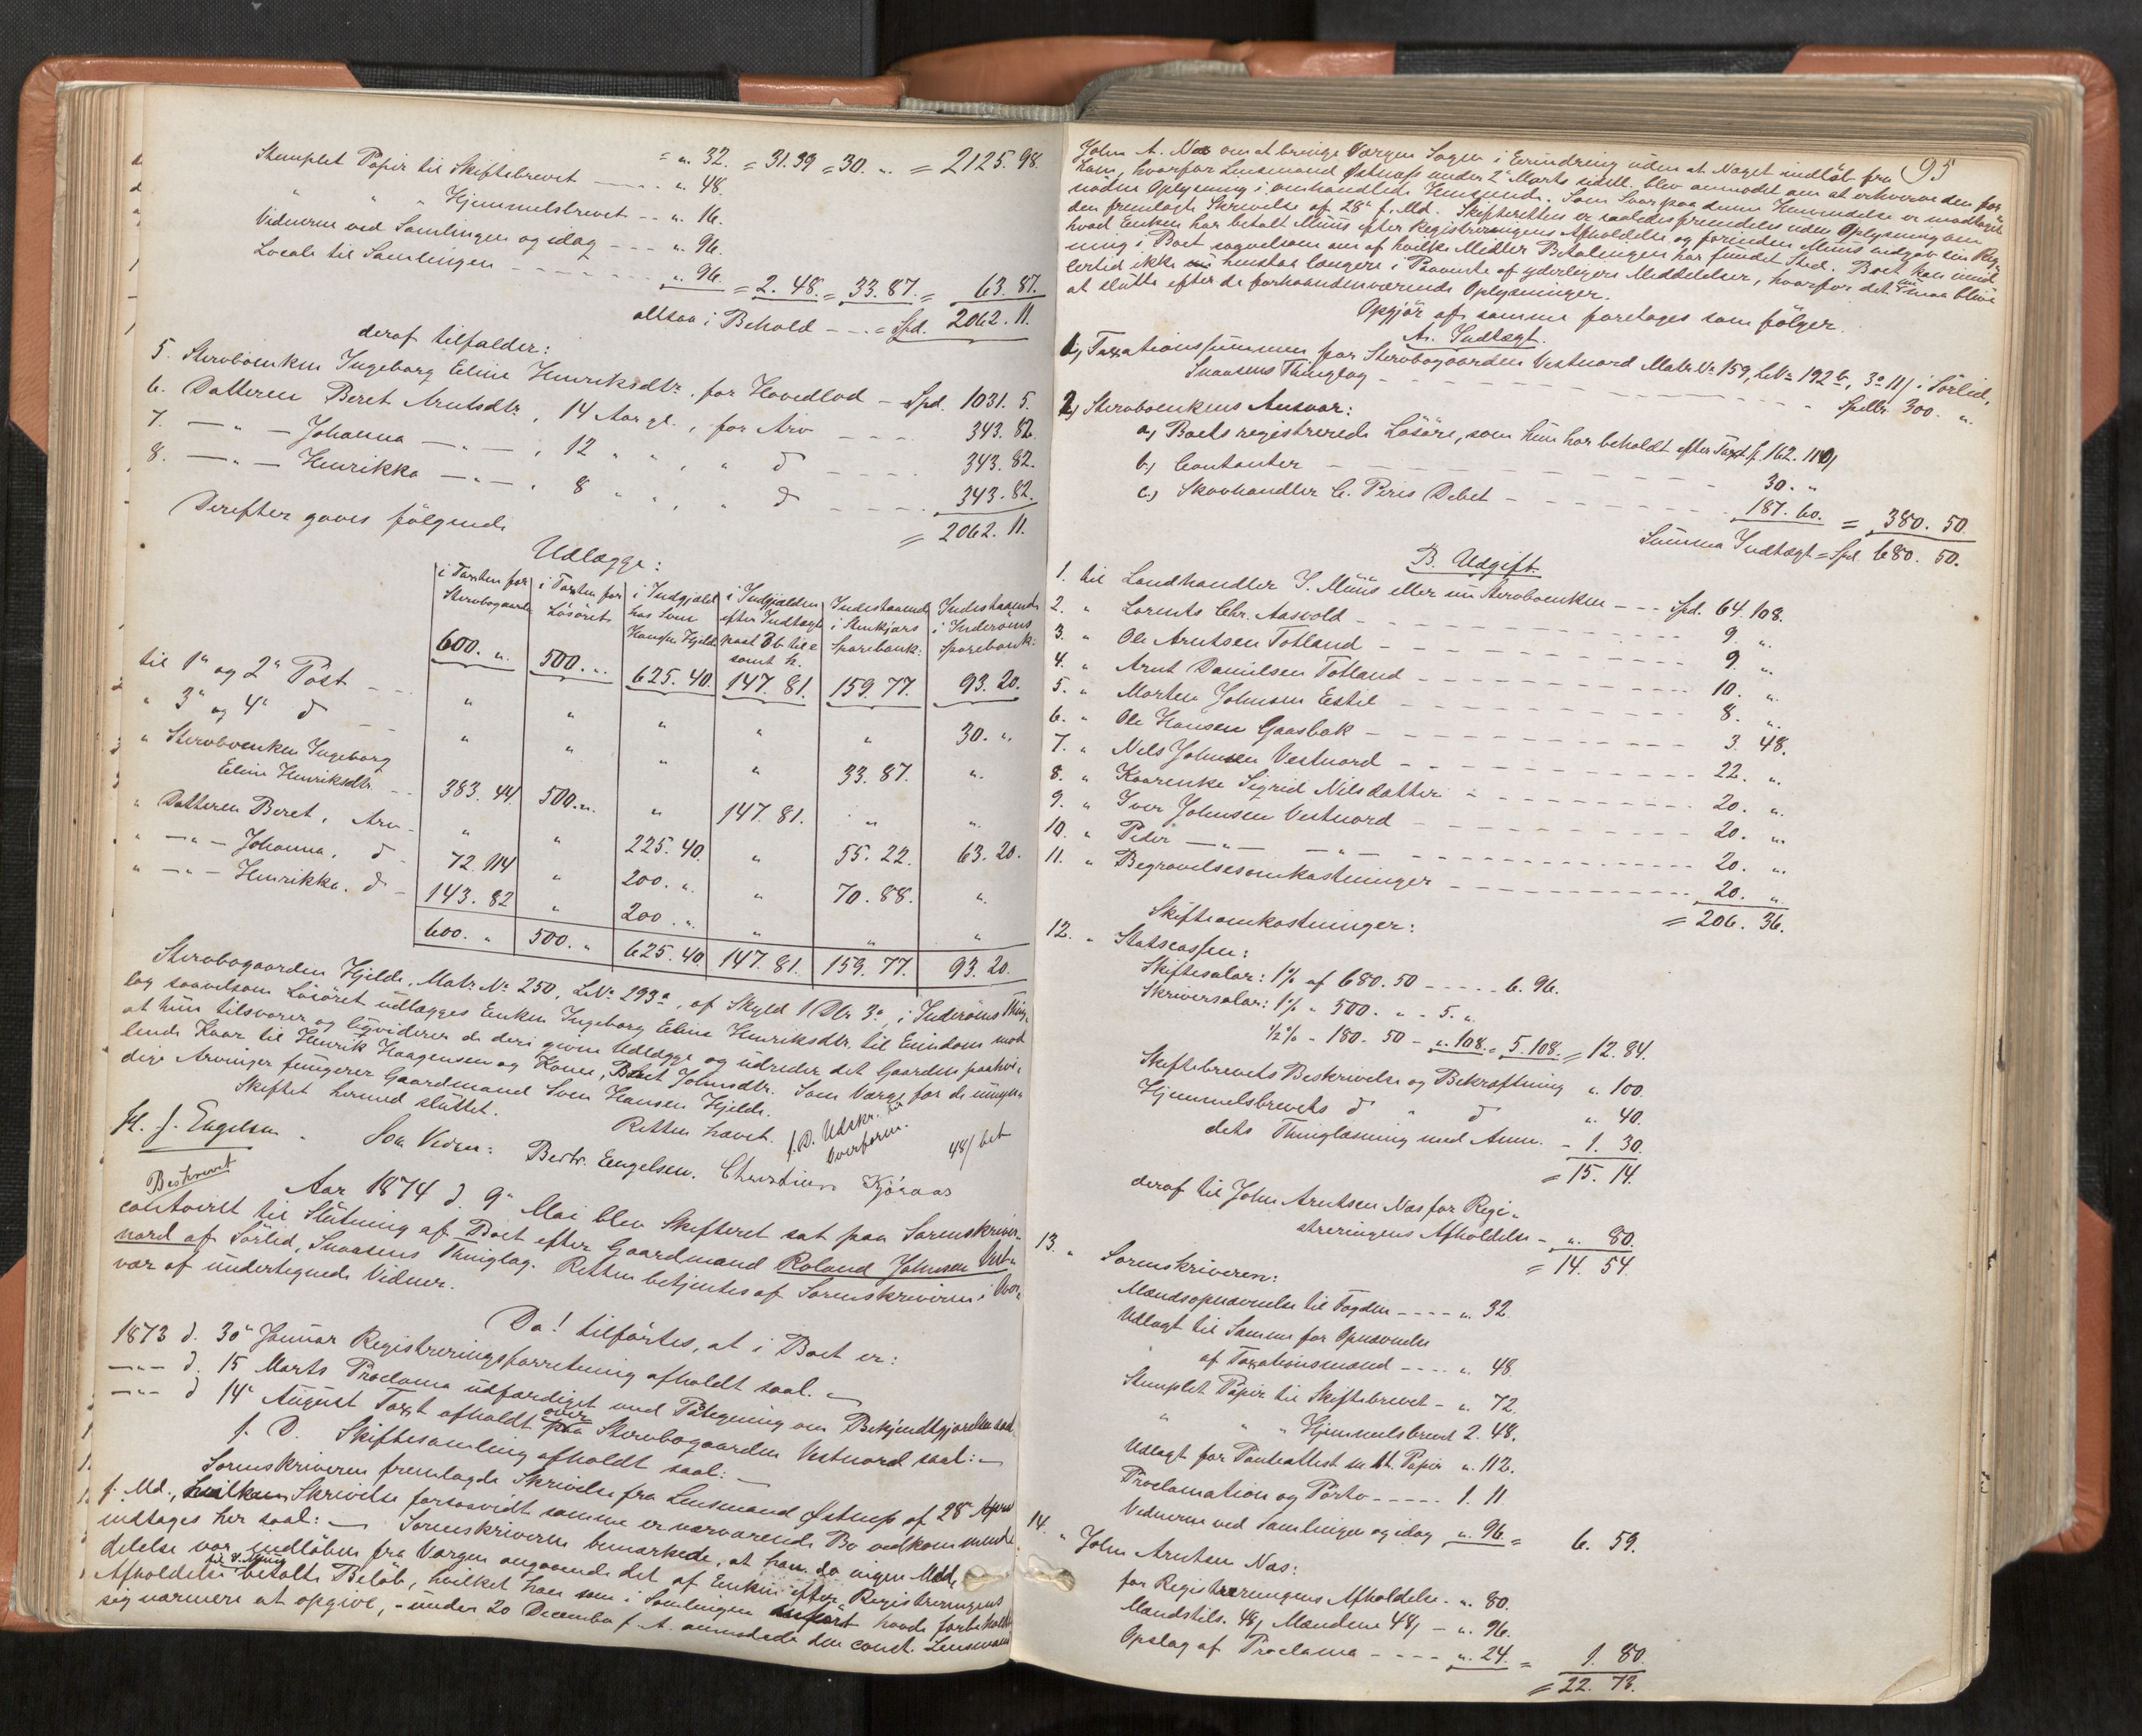 = „ 32. = 31.39 = 30. „ = 2125.98.
Stemplet Papir til Skiftebrevet - - - „ 48.
„ „ „ Hjemmelsbrevet - - „ 16.
Vidnerne ved Samlingen og idag - - - „ 96.
Locale til Samlingen - - - - - - - „ 96. = 2. 48. = 33. 87. = 63. 87.
altsaa i Behold - - - = Spd. 2062. 11.
deraf tilfalder:
5. Stervboenken Ingeborg Eline Henriksdtr. for Hovedlod - Spd. 1031. 5.
6. Datteren Beret Arntsdtr, 14 Aar gl., for Arv - - - 343. 82.
7. —„— Johanna —„—, 12 „ „ , „ d - - - - 343. 82.
8. —„— Henrikka —„—, 8 „ „ , „ d - - - - 343. 82.
= 2062. 11.
Derefter gaves følgende
Udlægge:
i Taxten for Stervbogaarden | i Taxten for Løsøret | i Indgjæld hos Sven Hansen Hjelde | i Indgjælden efter Indtægts post 3 b til e samt h. | Indestaaende i Stenkjærs Sparebank: | Indestaaende i Inderøens Sparebank:
600. „ | 500. „ | 625. 40. | 147. 81. | 159. 77. | 93. 20.
til 1ª og 2ª Post - - „ „ „ „ „ 30. „
„ 3ª og 4ª d - „ „ „ „ 33. 87. „
„ Stervboenken Ingeborg
Eline Henriksdtr. - - 383. 44. 500. „ „ 147. 81. „ „
„ Datteren Beret, Arv - „ „ 225. 40. „ 55. 22. 63. 20.
„ —„— Johanna, d - 72. 114 „ 200. „ „ 70. 88. „
„ —„— Henrikka, d - 143. 82 „ 200. „ „ „ „
600. „ 500. „ 625. 40. 147. 81. 159. 77. 93. 20.
Stervbogaarden Hjelde, Matr. No 250, LNo 293ª, af Skyld 1 Dlr 3 ., i Inderøens Thing-
lag saavelsom Løsøret udlægges Enken Ingeborg Eline Henriksdtr. til Eiendom mod
at hun tilsvarer og liqviderer de deri givne Udlægge og udreder det Gaarden paahvi-
lende Kaar til Henrik Haagensen og Kone, Beret Johnsdtr. Som Værge for de umyn-
dige Arvinger fungerer Gaardmand Sven Hansen Hjelde.
Skiftet hermed sluttet.
Retten hævet.
f. D. Udskr. til Overform.
48/ bet
H. J. Engelsen. Som Vidner: Bertr. Engelsen. Christian Kjøraas
Beskrevet
Aar 1874 d. 9ª Mai blev Skifteret sat paa Sorenskriver-
contoiret til Slutning af Boet efter Gaardmand Roland Johnsen Vest-
nord af Sørlid, Snaasens Thinglag. Retten betjentes af Sorenskriveren i Over-
vær af undertegnede Vidner.
Da! tilførtes, at i Boet er:
1873 d. 30ª Januar Registreringsforretning afholdt saal. —
—„— d. 15 Marts Proclama udfærdiget med Paategning om Bekjendtgjørelsen saal.
—„— d 14ª August Taxt afholdt over Stervbogaarden Vestnord saal: —
f. D. Skiftesamling afholdt saal: —
Sorenskriveren fremlagde Skrivelse fra Lensmand Østnæs af 28ª April
f. Md., hvilken Skrivelse forsaavidt samme er nærværende Bo vedkommende
indtages her saal: — Sorenskriveren bemærkede, at han da ingen Med-
delelse var indløben fra Værgen angaaende det af Enken efter Registreringens
Afholdelse til S. Müüs betalte Beløb, hvilket han som i Samlingen anført havde forbeholdt
sig nærmere at opgive, - under 20 December f. A. anmodede den const. Lensmand
95
John A. Næs om at bringe Værgen Sagen i Erindring uden at Noget indløb fra
ham, hvorfor Lensmand Østnæs under 2ª Marts sidstl. blev anmodet om at erhverve den for-
nødne Oplysning i omhandlede Henseende. Som Svar paa denne Henvendelse er modtaget
den fremlagte Skrivelse af 28ª f. Md. Skifteretten er saaledes fremdeles uden Oplysning om
hvad Enken har betalt Müüs efter Registreringens Afholdelse og forinden Müüs indgav sin Reg-
ning i Boet saavelsom om af hvilke Midler Betalingen har fundet Sted. Boet kan imid-
lertid ikke henstaa længere i Paavente af yderligere Meddelelser, hvorfor det nu maa blive
at slutte efter de forhaandenværende Oplysninger.
Opgjør af samme foretages som følger.
A. Indtægt.
1, Taxationssummen for Stervbogaarden Vestnord Matr. No 159, LNo 192 b, 3 ₰ 11 / i Sørlid,
Snaasens Thinglag - - - - - - - - Spdlr. 300. „
2, Stervboenkens Ansvar:
a, Boets registrerede Løsøre, som hun har beholdt efter Taxt Sp. 162. 110,
b, Contanter - - - - - - - - 30. „
c, Skovhandler C. Peris Debet - - - - - - 187. 60. = 380. 50.
Summa Indtægt = Spd. 680. 50.
B. Udgift.
1. til Landhandler S. Müüs eller nu Stervboenken - - - Spd. 64. 108.
2. „ Lorents Chr. Aasvold - - - - - - - 9. „
3. „ Ole Arntsen Totland - - - - - - - 9. „
4. „ Arnt Danielsen Totland - - - - - - 10. „
5. „ Morten Johnsen Estil - - - - - - 8. „
6. „ Ole Hansen Gaasbak - - - - - - 3. 48.
7. „ Nels Johnsen Vestnord - - - - - - 22. „
8. „ Kaarenke Sigrid Nilsdatter - - - - - - 20. „
9. „ Iver Johnsen Vestnord - - - - - - 20. „
10. „ Peder —„— —„— - - - - - - 20. „
11. „ Begravelsesomkostninger - - - - - - 20. „
= 206. 36.
Skifteomkostninger:
12. „ Statscassen:
Skiftesalær: 1% af 680. 50 - - - - - 6. 96.
Skriversalær: 1% „ 500. „ - 5. „
½% - 180. 50 - „ 108. = 5. 108. = 12. 84.
Skiftebrevets Beskrivelse og Bekræftning „ 100.
Hjemmelsbrevets d „ d „ 40.
dets Thinglæsning med Ann. - 1. 30.
= 15. 14.
deraf til John Arntsen Næs for Regi-
streringens Afholdelse - „ 80.
= 14. 54.
13. „ Sorenskriveren:
Mandsopnævnelse til Fogden - - - - „ 32.
Udlagt til Samme for Opnævnelse
af Taxationsmænd - - - - „ 48.
Stemplet Papir til Skiftebrevet - „ 72.
„ „ „ Hjemmelsbrevet 2. 48.
Udlagt for Panteattest m. st. Papir „ 112.
Proclamation og Porto - - - - - 1. 11.
Vidnerne ved Samlingen og idag „ 96. = 6. 59.
14. „ John Arntsen Næs:
for Registreringens Afholdelse - „ 80.
Mandstils. 48, Mændene 48, - „ 96.
Opslag af Proclama - - - - „ 24. = 1. 80.
= 22. 73.